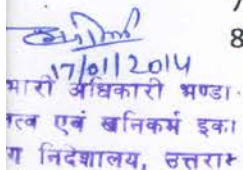 8
17/01/2014
भारी अधिकारी भण्डा
त्व एवं खनिकर्म इका
ग निदेशालय, उत्तरा